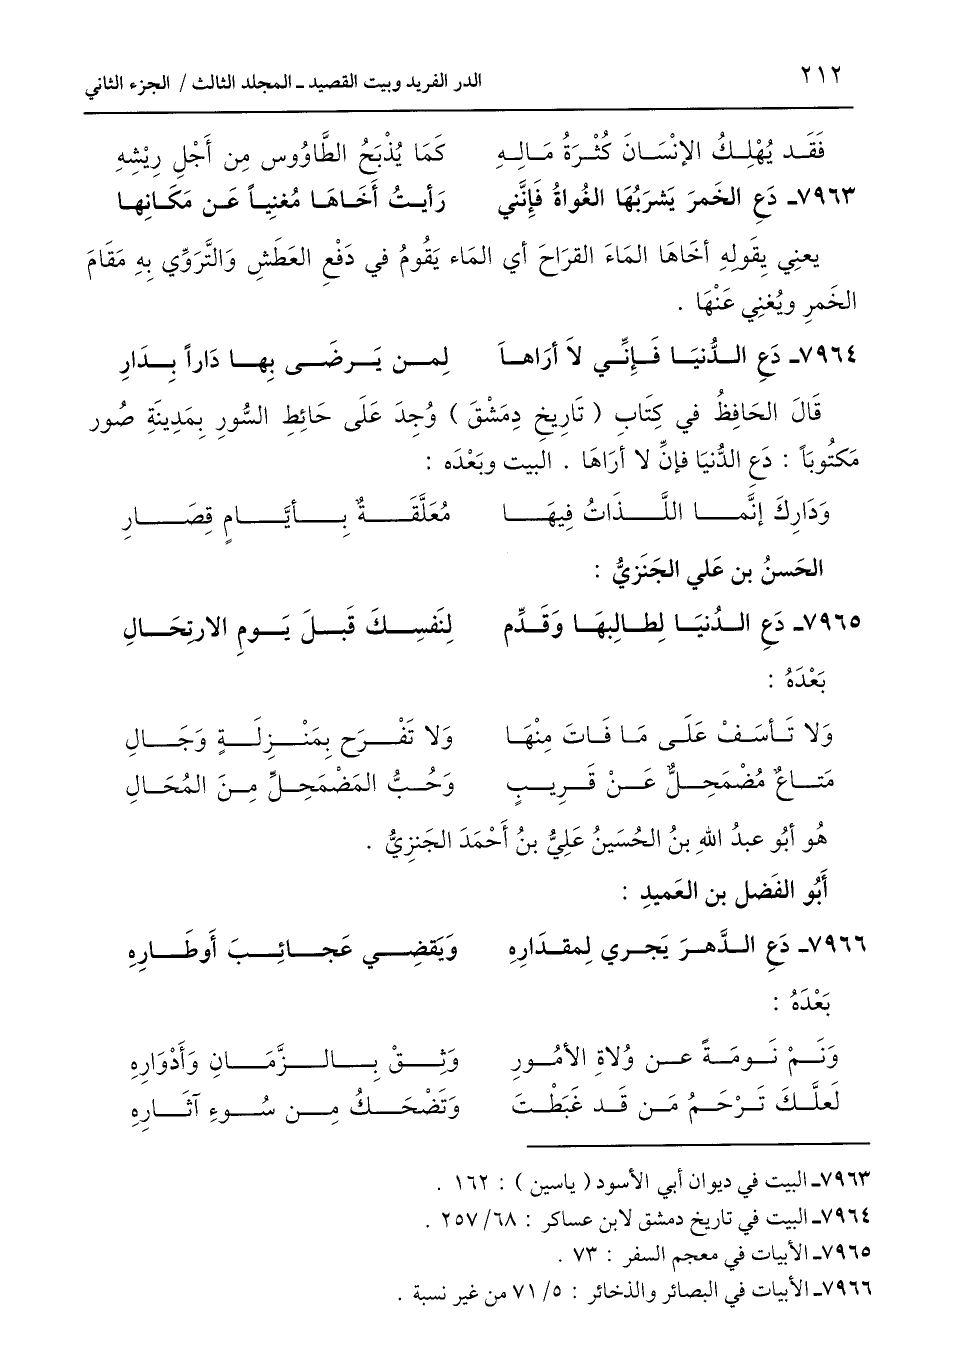 ٢١٢
الدر الفريد وبيت القصيد ـ المجلد الثالث / الجزء الثاني
فَقَد يُهْلِكُ الإنْسَانَ كُثْرَةُ مَالِهِ كَمَا يُذْبَحُ الطَّاوُوس مِن أَجْلِ رِيْشِهِ
٧٩٦٣ـ دَعِ الخَمرَ يَشرَبُهَا الغُواةُ فَإنَّني رَأيتُ أخَاهَا مُغنِياً عَن مَكَانِها
يعنِي بِقَولِهِ أخَاهَا المَاءَ القرَاحَ أي المَاء يَقُومُ في دَفْعِ العَطَشِ وَالتَّرَوِّي بِهِ مَقَامَ
الخَمرِ ويُغنِي عَنْهَا .
٧٩٦٤ـ دَعِ الدُّنيَا فَإنِّي لاَ أرَاهَا لِمن يَرضَى بِها دَاراً بِدَارِ
قَالَ الحَافِظُ في كِتَابِ ( تَاريخِ دِمَشْقَ ) وُجِدَ عَلَى حَائِطِ السُّورِ بِمَدِينَةِ صُور
مَكتُوبَاً : دَعِ الدُّنيَا فإنِّ لا أرَاهَا . البيت وبَعْدَه :
وَدَارِكَ إنَّمَا اللَّذَاتُ فِيهَا مُعَلَّقَةٌ بِأيَّامٍ قِصَارِ
الحَسنُ بن عَلي الجَنَزيُّ :
٧٩٦٥ـ دَعِ الدُنيَا لِطالِبهَا وَقَدِّم لِنَفسِكَ قَبلَ يَومِ الارتِحَالِ
بَعْدَهُ :
وَلا تَأسَفْ عَلَى مَا فَاتَ مِنْهَا وَلا تَفْرَح بِمَنْزِلَةٍ وَجَالِ
مَتاعٌ مُضْمَحِلٌّ عَنْ قَرِيبٍ وَحُبُّ المَضْمَحِلِّ مِنَ المُحَالِ
هُو أبُو عبدُ اللهِ بنُ الحُسَينُ عَلِيُّ بنُ أَحْمَدَ الجَنزِيُّ .
أَبُو الفَضل بن العَميدِ :
٧٩٦٦ـ دَعِ الدَّهرَ يَجري لِمقدَارهِ وَيَقضِي عَجائِبَ أَوطَارِهِ
بَعْدَهُ :
وَنَمْ نَومَةً عَن وُلاةِ الأمُورِ وَثِقْ بِالزَّمَانِ وَأَدْوَارِهِ
لَعلَّكَ تَرْحَمُ مَن قَد غَبَطْتَ وَتَضْحَكُ مِن سُوءِ آثَارِهِ
٧٩٦٣ـ البيت في ديوان أبي الأسود ( ياسين ) : ١٦٢ .
٧٩٦٤ـ البيت في تاريخ دمشق لابن عساكر : ٦٨/ ٢٥٧ .
٧٩٦٥ـ الأبيات في معجم السفر : ٧٣ .
٧٩٦٦ـ الأبيات في البصائر والذخائر : ٥/ ٧١ من غير نسبة .